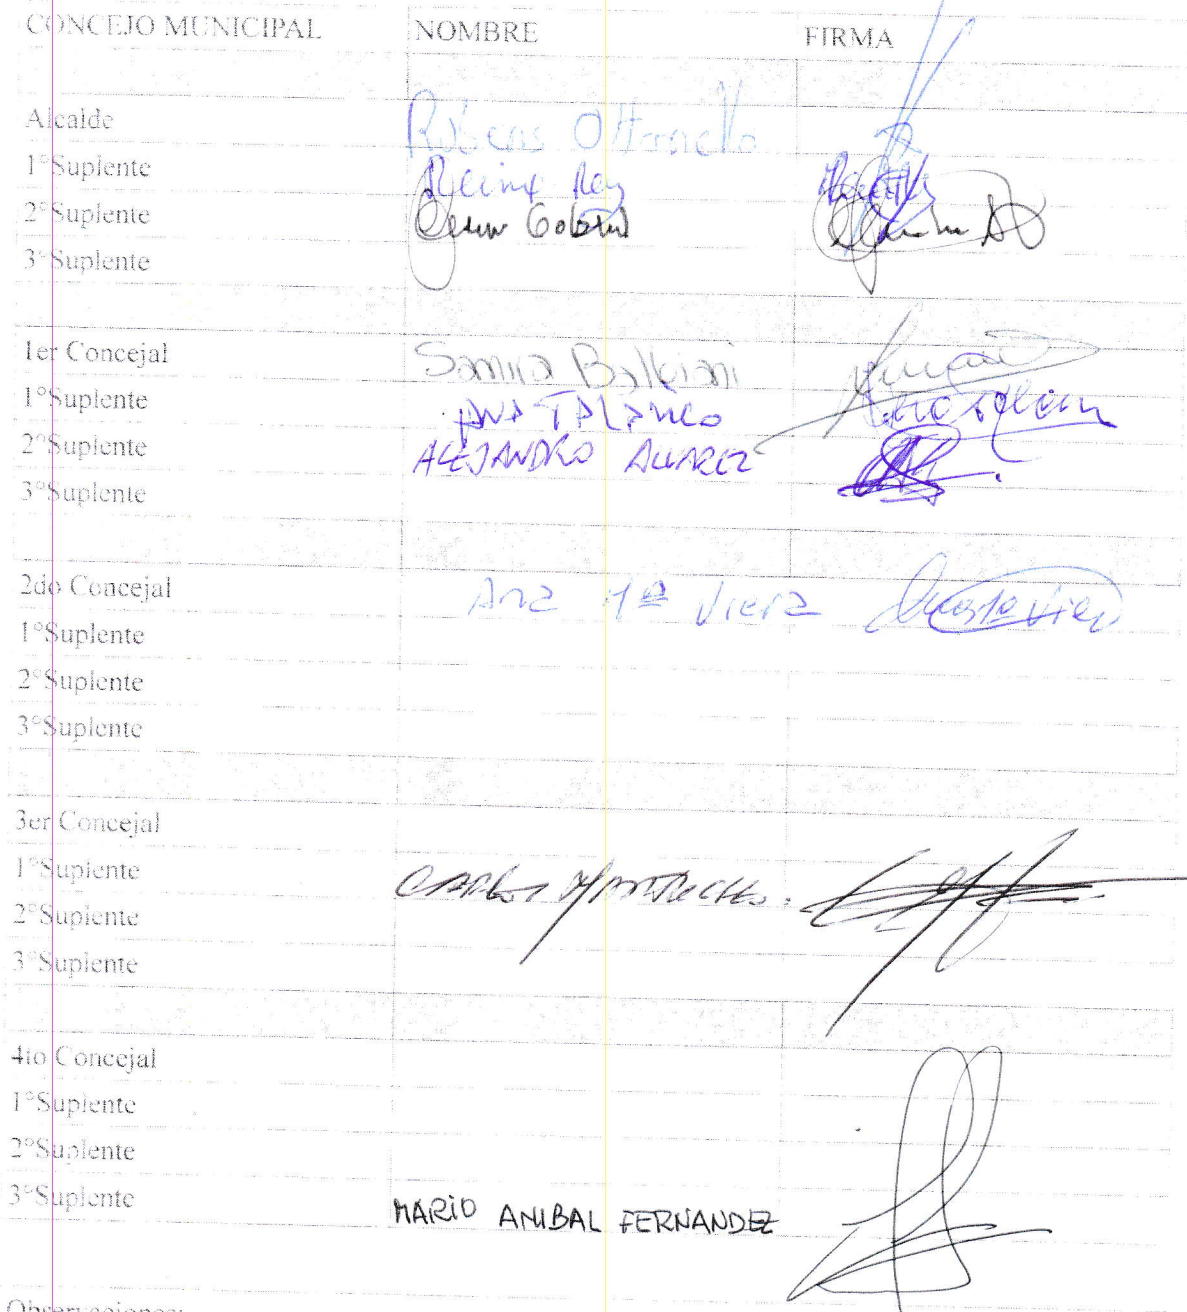 CONCEJO MUNICIPAL NOMBRE FIRMA
Alcaide Rubens Ottonello
1°Suplente Reina Rey
2°Suplente
3°Suplente
1er Concejal Samira Balkiani
1°Suplente ANA TALANCO
2°Suplente ALEJANDRO ALVAREZ
3°Suplente
2do Concejal Ana Mª Viera
1°Suplente
2°Suplente
3°Suplente
3er Concejal
1°Suplente CARLOS
2°Suplente
3°Suplente
4to Concejal
1°Suplente
2°Suplente
3°Suplente MARIO ANIBAL FERNANDEZ
Observaciones: